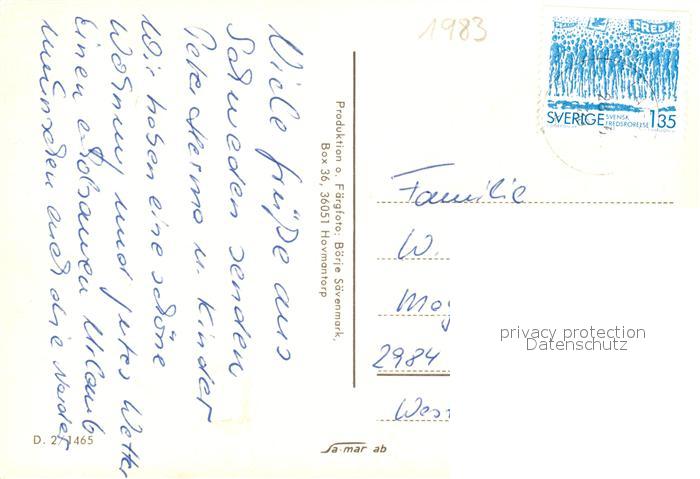 Viele Grüße aus
Schweden senden
Peter Herma u. Kinder
Wir haben eine schöne
Wohnung und gutes Wetter
Einen erholsamen Urlaub
wünschen euch die
Produktion o. Färgfoto: Börje Sävenmark,
Box 36, 36051 Hovmantorp
1983
FRED!
SVERIGE SVENSK FREDSRÖRELSE 135
Familie
W.
2984
D. 27 1465
sa-mar ab
privacy protection
Datenschutz